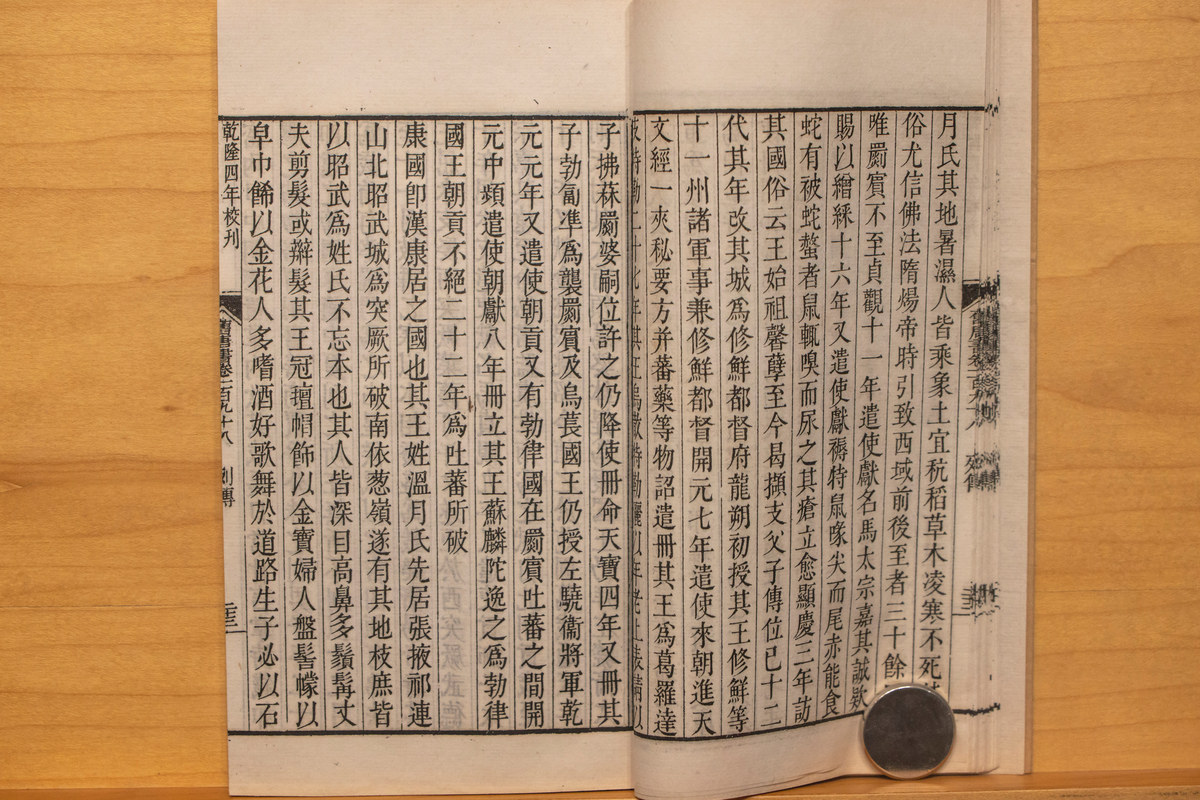 月氏其地暑濕人皆乘象土宜秔稻草木凌寒不死
俗尤信佛法隋煬帝時引致西域前後至者三十餘
唯罽賓不至貞觀十一年遣使獻名馬太宗嘉其誠欵
賜以繒綵十六年又遣使獻褥特鼠喙尖而尾赤能食
蛇有被蛇螫者鼠輒嗅而尿之其瘡立愈顯慶三年訪
其國俗云王始祖馨孽至今曷擷支父子傳位已十二
代其年改其城爲修鮮都督府龍朔初授其王修鮮等
十一州諸軍事兼修鮮都督開元七年遣使來朝進天
文經一夾秘要方并蕃藥等物詔遣冊其王爲葛羅達
子拂菻罽婆嗣位許之仍降使冊命天寶四年又冊其
子勃匐凖爲襲罽賓及烏萇國王仍授左驍衞將軍乾
元元年又遣使朝貢又有勃律國在罽賓吐蕃之間開
元中頻遣使朝獻八年冊立其王蘇麟陀逸之爲勃律
國王朝貢不絕二十二年爲吐蕃所破
康國卽漢康居之國也其王姓溫月氏先居張掖祁連
山北昭武城爲突厥所破南依葱嶺遂有其地枝庶皆
以昭武爲姓氏不忘本也其人皆深目高鼻多鬚髯丈
夫剪髮或辮髮其王冠氊帽飾以金寶婦人盤髻幪以
皁巾餙以金花人多嗜酒好歌舞於道路生子必以石
乾隆四年校刊
舊唐書卷一百九十八
列傳